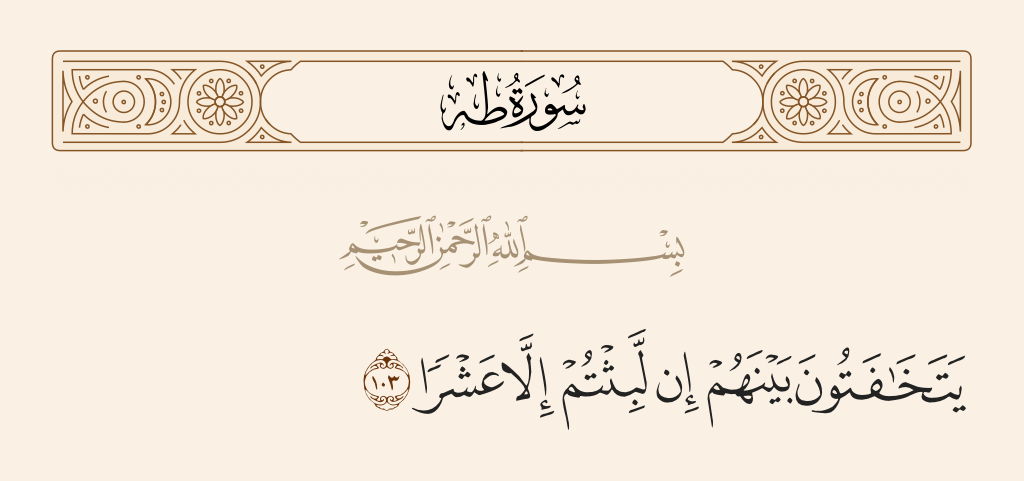 سُورَةُ طه
بِسْمِ ٱللَّهِ ٱلرَّحْمَٰنِ ٱلرَّحِيمِ
يَتَخَٰفَتُونَ بَيْنَهُمْ إِن لَّبِثْتُمْ إِلَّا عَشْرًا ١٠٣